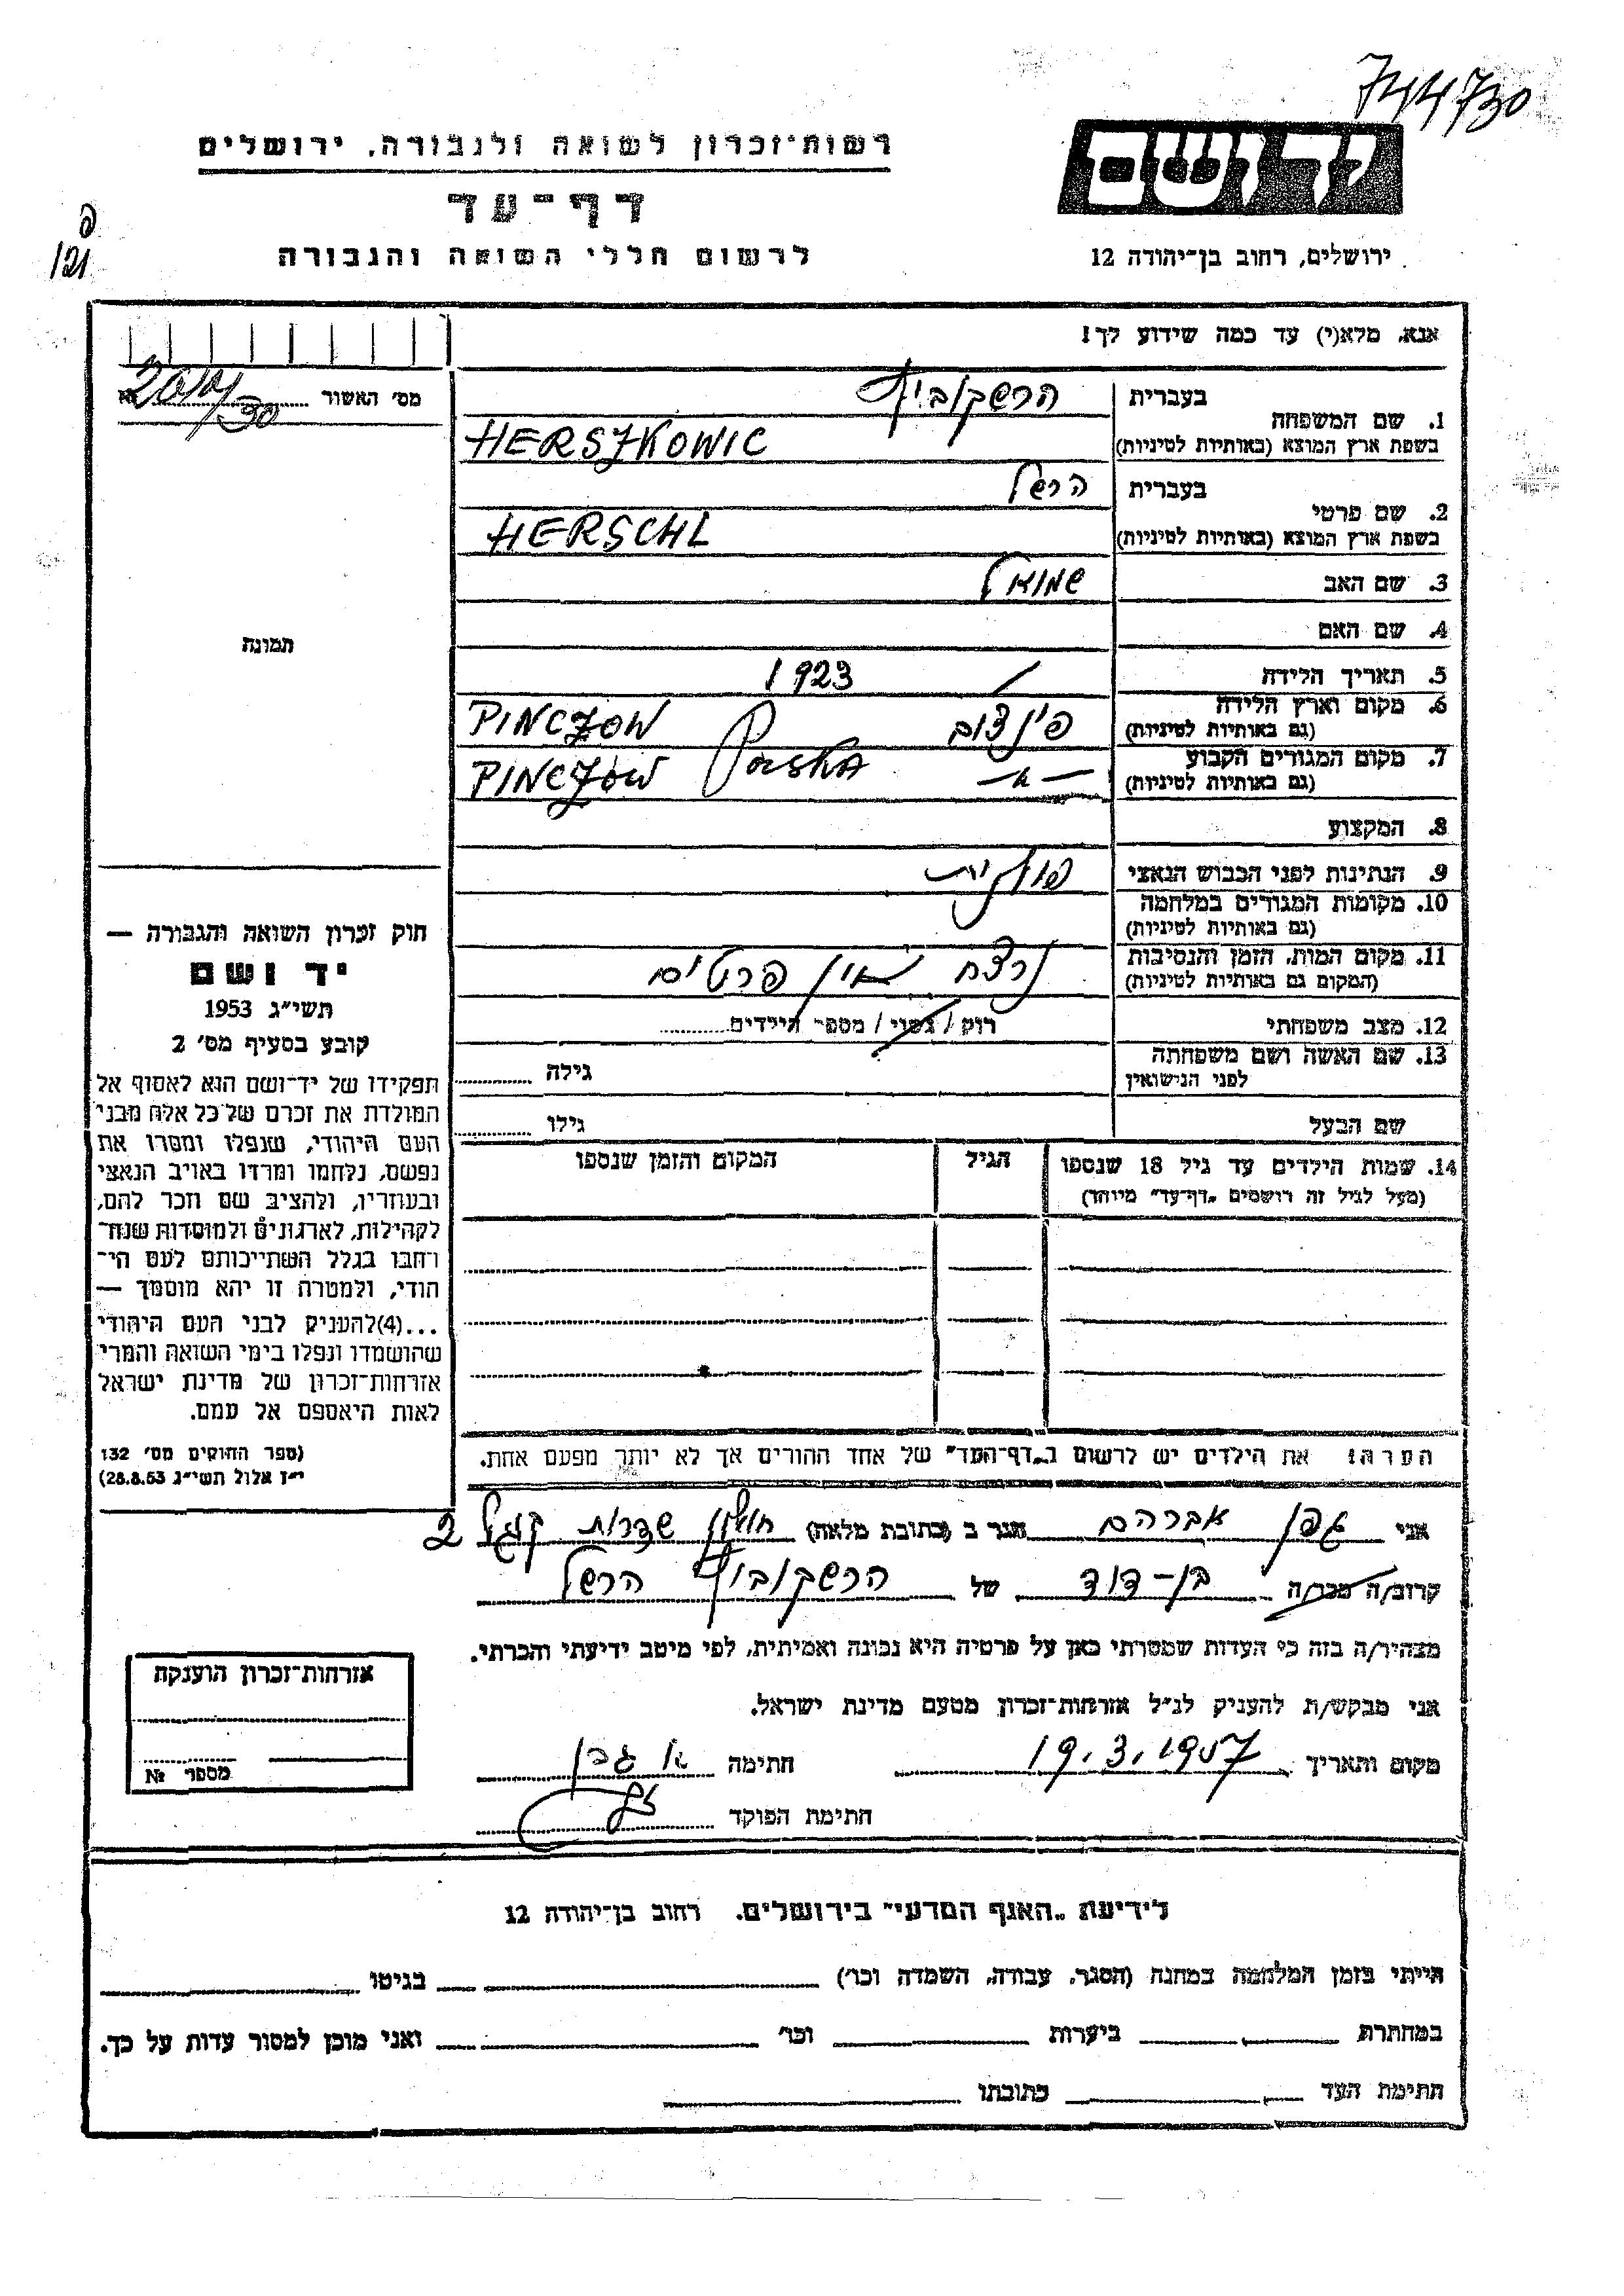 744730
יד ושם
רשות־זכרון לשואה ולגבורה, ירושלים
דף־עד
לרשום חללי השואה והגבורה
ירושלים, רחוב בן־יהודה 12
פ
121
אנא, מלא(י) עד כמה שידוע לך!
מס' האשור
1. שם המשפחה
בעברית הרשקוביץ
בשפת ארץ המוצא (באותיות לטיניות) HERSZKOWIC
2. שם פרטי
בעברית הרשל
בשפת ארץ המוצא (באותיות לטיניות) HERSCHL
3. שם האב שמואל
4. שם האם
תמונה
5. תאריך הלידה 1923
6. מקום וארץ הלידה פינצוב PINCZOW Polska
(גם באותיות לטיניות)
7. מקום המגורים הקבוע PINCZOW
(גם באותיות לטיניות)
8. המקצוע
9. הנתינות לפני הכבוש הנאצי פולנית
10. מקומות המגורים במלחמה
(גם באותיות לטיניות)
11. מקום המות, הזמן והנסיבות נרצח אין פרטים
(המקום גם באותיות לטיניות)
12. מצב משפחתי רוק / נשוי / מספר הילדים
13. שם האשה ושם משפחתה גילה
לפני הנישואין
שם הבעל גילו
14. שמות הילדים עד גיל 18 שנספו הגיל המקום והזמן שנספו
(מעל לגיל זה רושמים „דף־עד" מיוחד)
הערה: את הילדים יש לרשום ב„דף־העד" של אחד ההורים אך לא יותר מפעם אחת.
חוק זכרון השואה והגבורה —
יד ושם
תשי״ג 1953
קובע בסעיף מס' 2
תפקידו של יד־ושם הוא לאסוף אל
המולדת את זכרם של כל אלה מבני
העם היהודי, שנפלו ומסרו את
נפשם, נלחמו ומרדו באויב הנאצי
ובעוזריו, ולהציב שם וזכר להם,
לקהילות, לארגונים ולמוסדות שנח־
רחבו בגלל השתייכותם לעם הי־
הודי, ולמטרה זו יהא מוסמך —
...(4) להעניק לבני העם היהודי
שהושמדו ונפלו בימי השואה והמרי
אזרחות־זכרון של מדינת ישראל
לאות היאספם אל עמם.
(ספר החוקים מס' 132
י״ז אלול תשי״ג 28.8.53)
אני גפן אברהם הגר ב (כתובת מלאה) חולון שדרות קוגל 2
קרוב/ה מכר/ה בן־דוד של הרשקוביץ הרשל
מצהיר/ה בזה כי העדות שמסרתי כאן על פרטיה היא נכונה ואמיתית, לפי מיטב ידיעתי והכרתי.
אני מבקש/ת להעניק לנ״ל אזרחות־זכרון מטעם מדינת ישראל.
מקום ותאריך 19.3.1957 חתימה א גפן
חתימת הפוקד
אזרחות־זכרון הוענקה
מספר №
לידיעת „האגף המדעי" בירושלים. רחוב בן־יהודה 12
הייתי בזמן המלחמה במחנה (הסגר, עבודה, השמדה וכו') בגיטו
במחתרת ביערות וכו' ואני מוכן למסור עדות על כך.
חתימת העד כתובתו